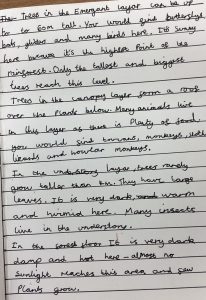 The Trees in the Emergent layer can be up
to to 60m tall. You would find butterflys
bats, gliders and many birds here. It's sunny
here because it's the highest point of the
rainforest. Only the tallest and biggest
trees reach this level.
Trees in the canopy layer form a roof
over the plants below. Many animals live
in this layer as there is Plenty of food.
You would find toucans, monkeys, sloths
lizards and howler monkeys.
In the understory layer, trees rarely
grow taller than 4m. They have large
leaves. It is very dark, and warm
and humid here. Many insects
live in the understory.
In the forest floor It is very dark
damp and hot here - almost no
sunlight reaches this area and few
Plants grow.